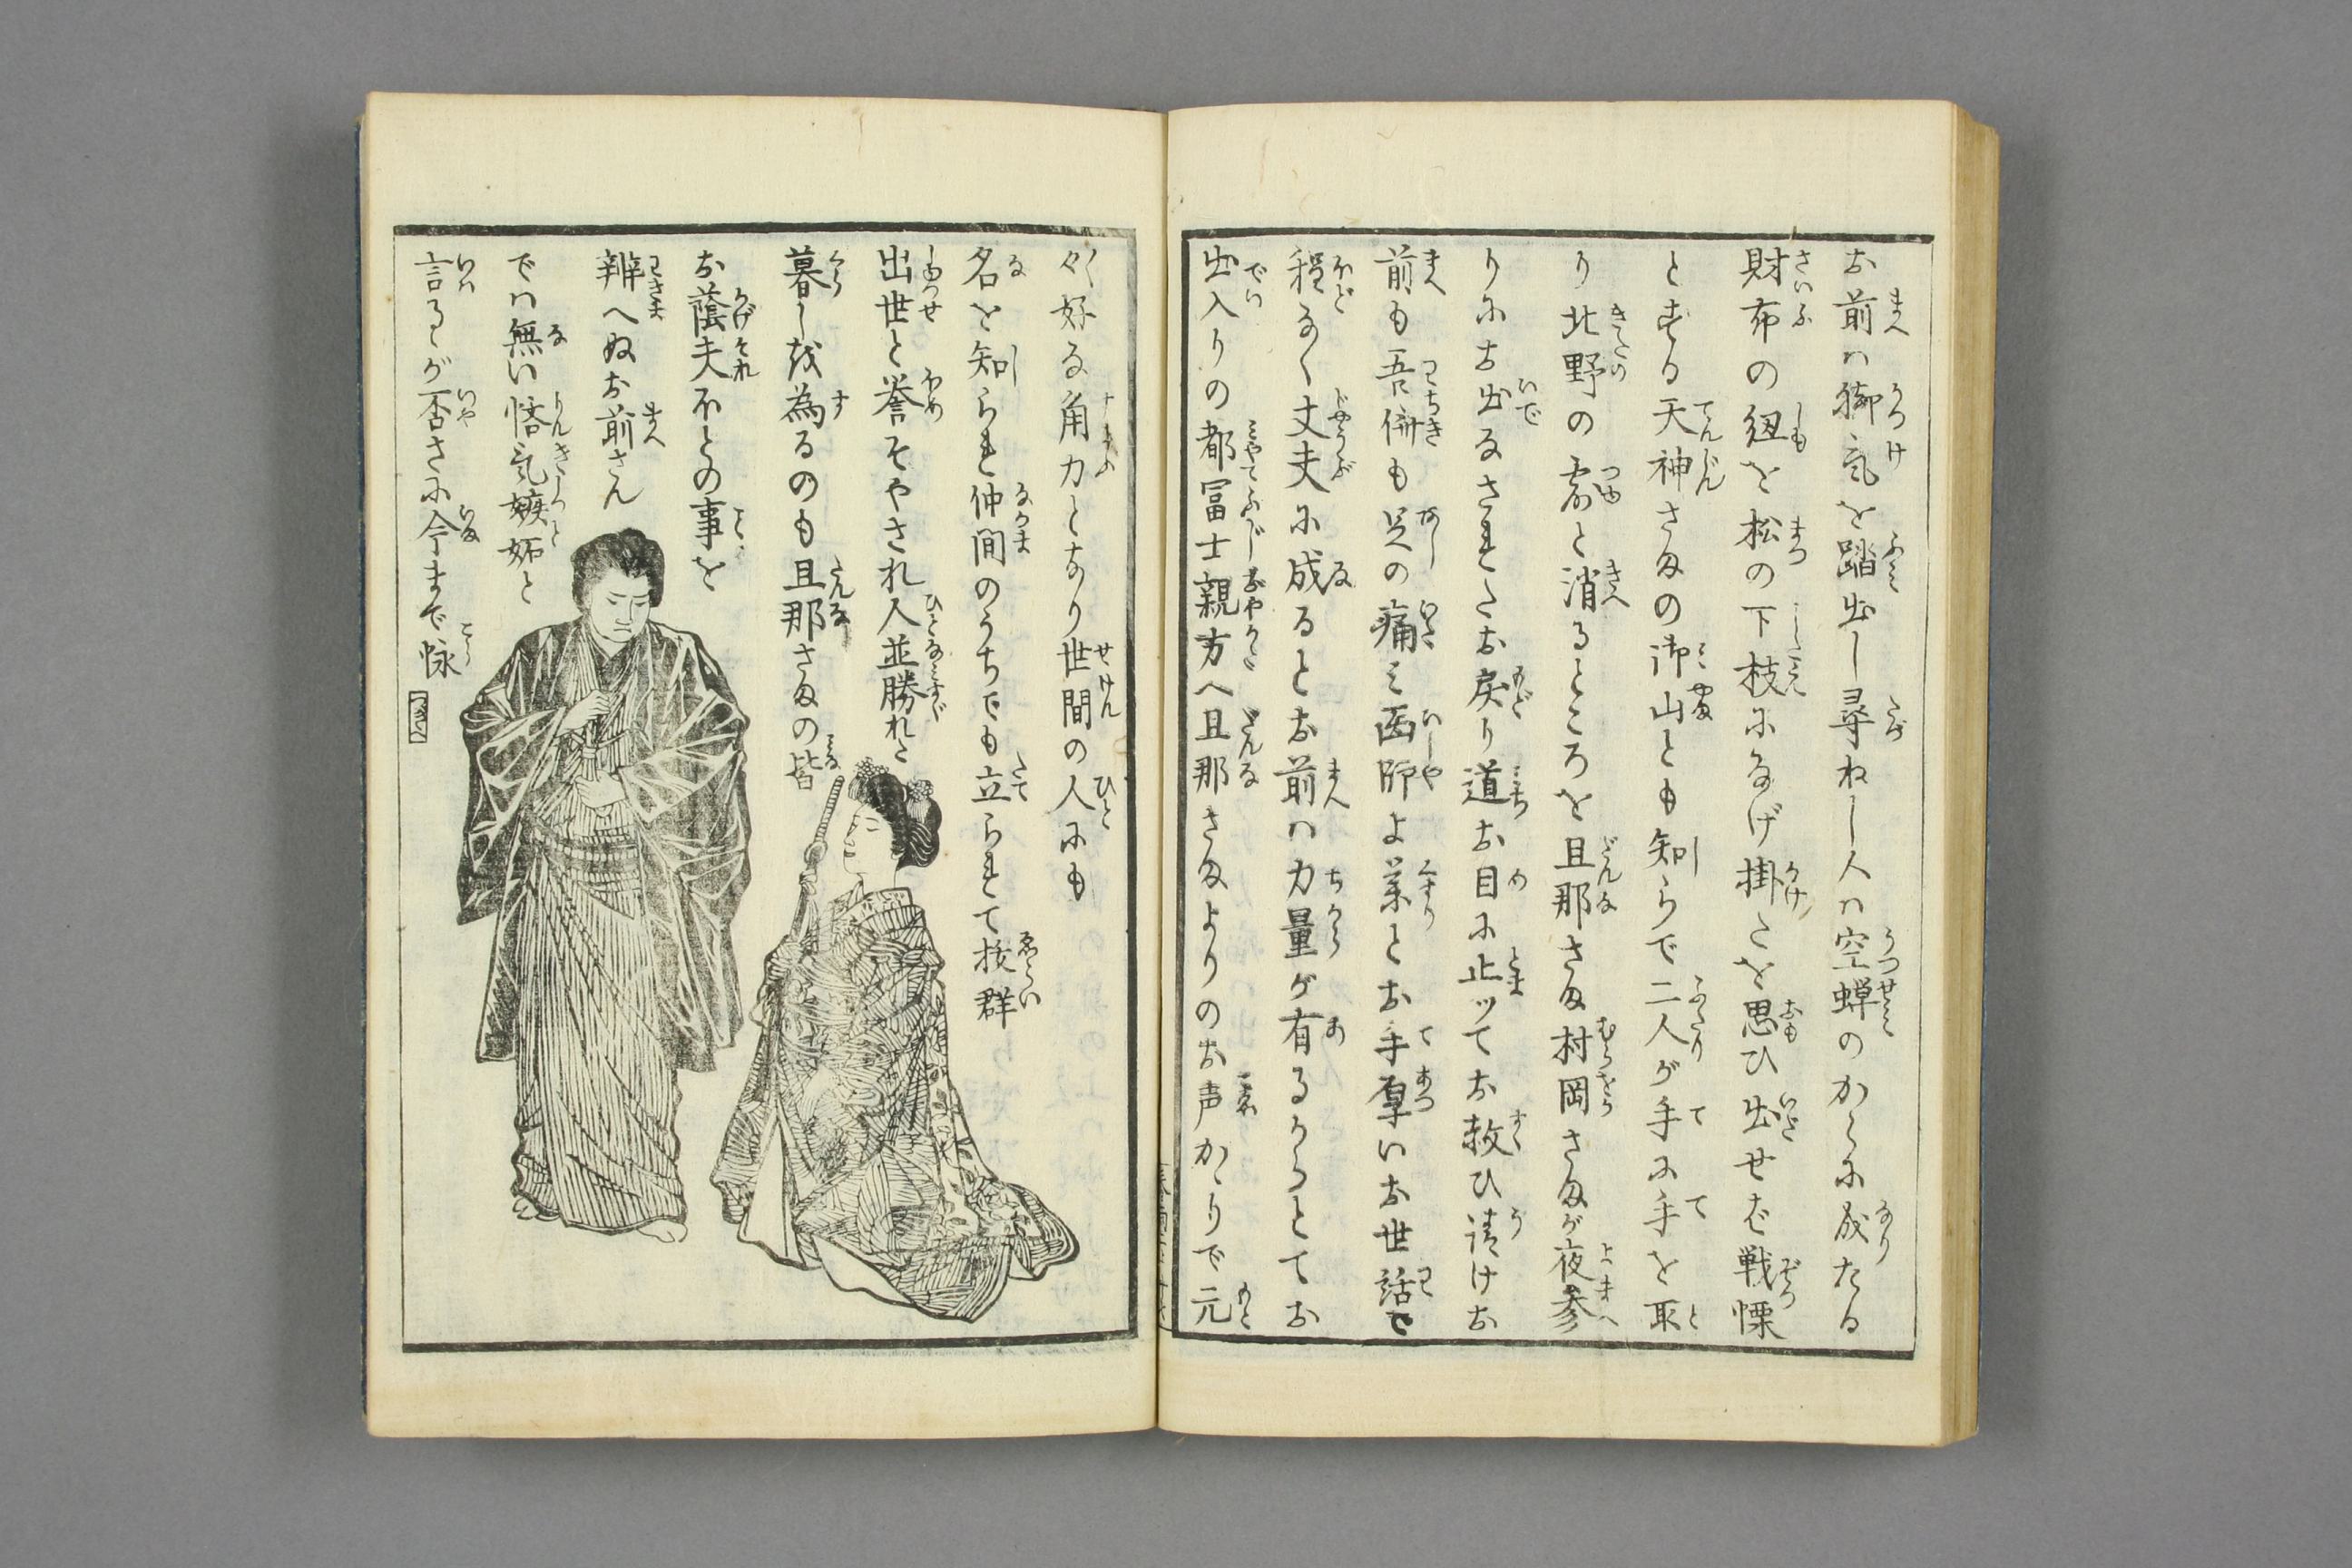 お前ハ御気を踏出し尋ねし人ハ空蝉のからに成たる
財布の紐を松の下枝になげ掛たを思ひ出せば戦慄
とする天神さまの御山とも知らで二人が手に手を取
り北野の露と消るところを旦那さま村岡さまが夜参
りにお出なされたお戻り道お目に止ツてお救ひ請けお
前も吾儕も足の痛ミ医師よ薬とお手厚いお世話で
程なく丈夫に成るとお前ハ力量が有るからとてお
出入りの都冨士親方へ旦那さまよりのお声かゝりで元
々好る角力となり世間の人にも
名を知られ仲間のうちでも立られて抜群
出世と誉そやされ人並勝れた
暮しを為るのも旦那さまの皆
お蔭夫ほとの事を
辨へぬお前さん
でハ無い悋気嫉妬と
言るゝが否さに今まで怺
つぎへ